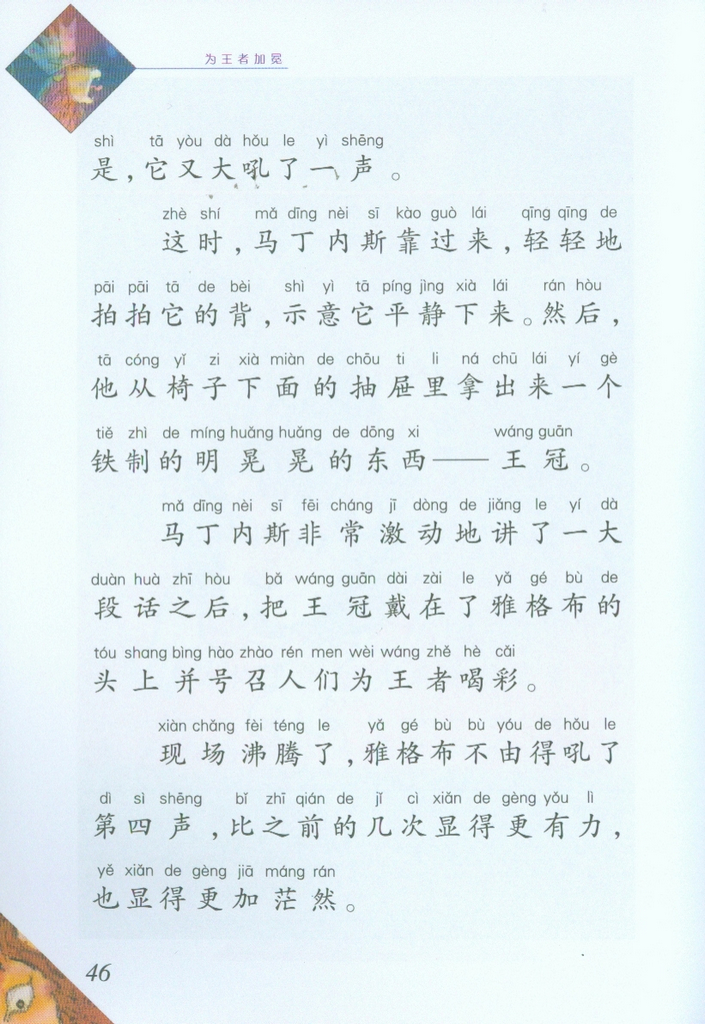 为王者加冕
shì tā yòu dà hǒu le yì shēng
是，它又大吼了一声。
zhè shí mǎ dīng nèi sī kào guò lái qīng qīng de
这时，马丁内斯靠过来，轻轻地
pāi pāi tā de bèi shì yì tā píng jìng xià lái rán hòu
拍拍它的背，示意它平静下来。然后，
tā cóng yǐ zi xià miàn de chōu ti li ná chū lái yí gè
他从椅子下面的抽屉里拿出来一个
tiě zhì de míng huǎng huǎng de dōng xi wáng guān
铁制的明晃晃的东西——王冠。
mǎ dīng nèi sī fēi cháng jī dòng de jiǎng le yí dà
马丁内斯非常激动地讲了一大
duàn huà zhī hòu bǎ wáng guān dài zài le yǎ gé bù de
段话之后，把王冠戴在了雅格布的
tóu shang bìng hào zhào rén men wèi wáng zhě hè cǎi
头上并号召人们为王者喝彩。
xiàn chǎng fèi téng le yǎ gé bù bù yóu de hǒu le
现场沸腾了，雅格布不由得吼了
dì sì shēng bǐ zhī qián de jǐ cì xiǎn de gèng yǒu lì
第四声，比之前的几次显得更有力，
yě xiǎn de gèng jiā máng rán
也显得更加茫然。
46